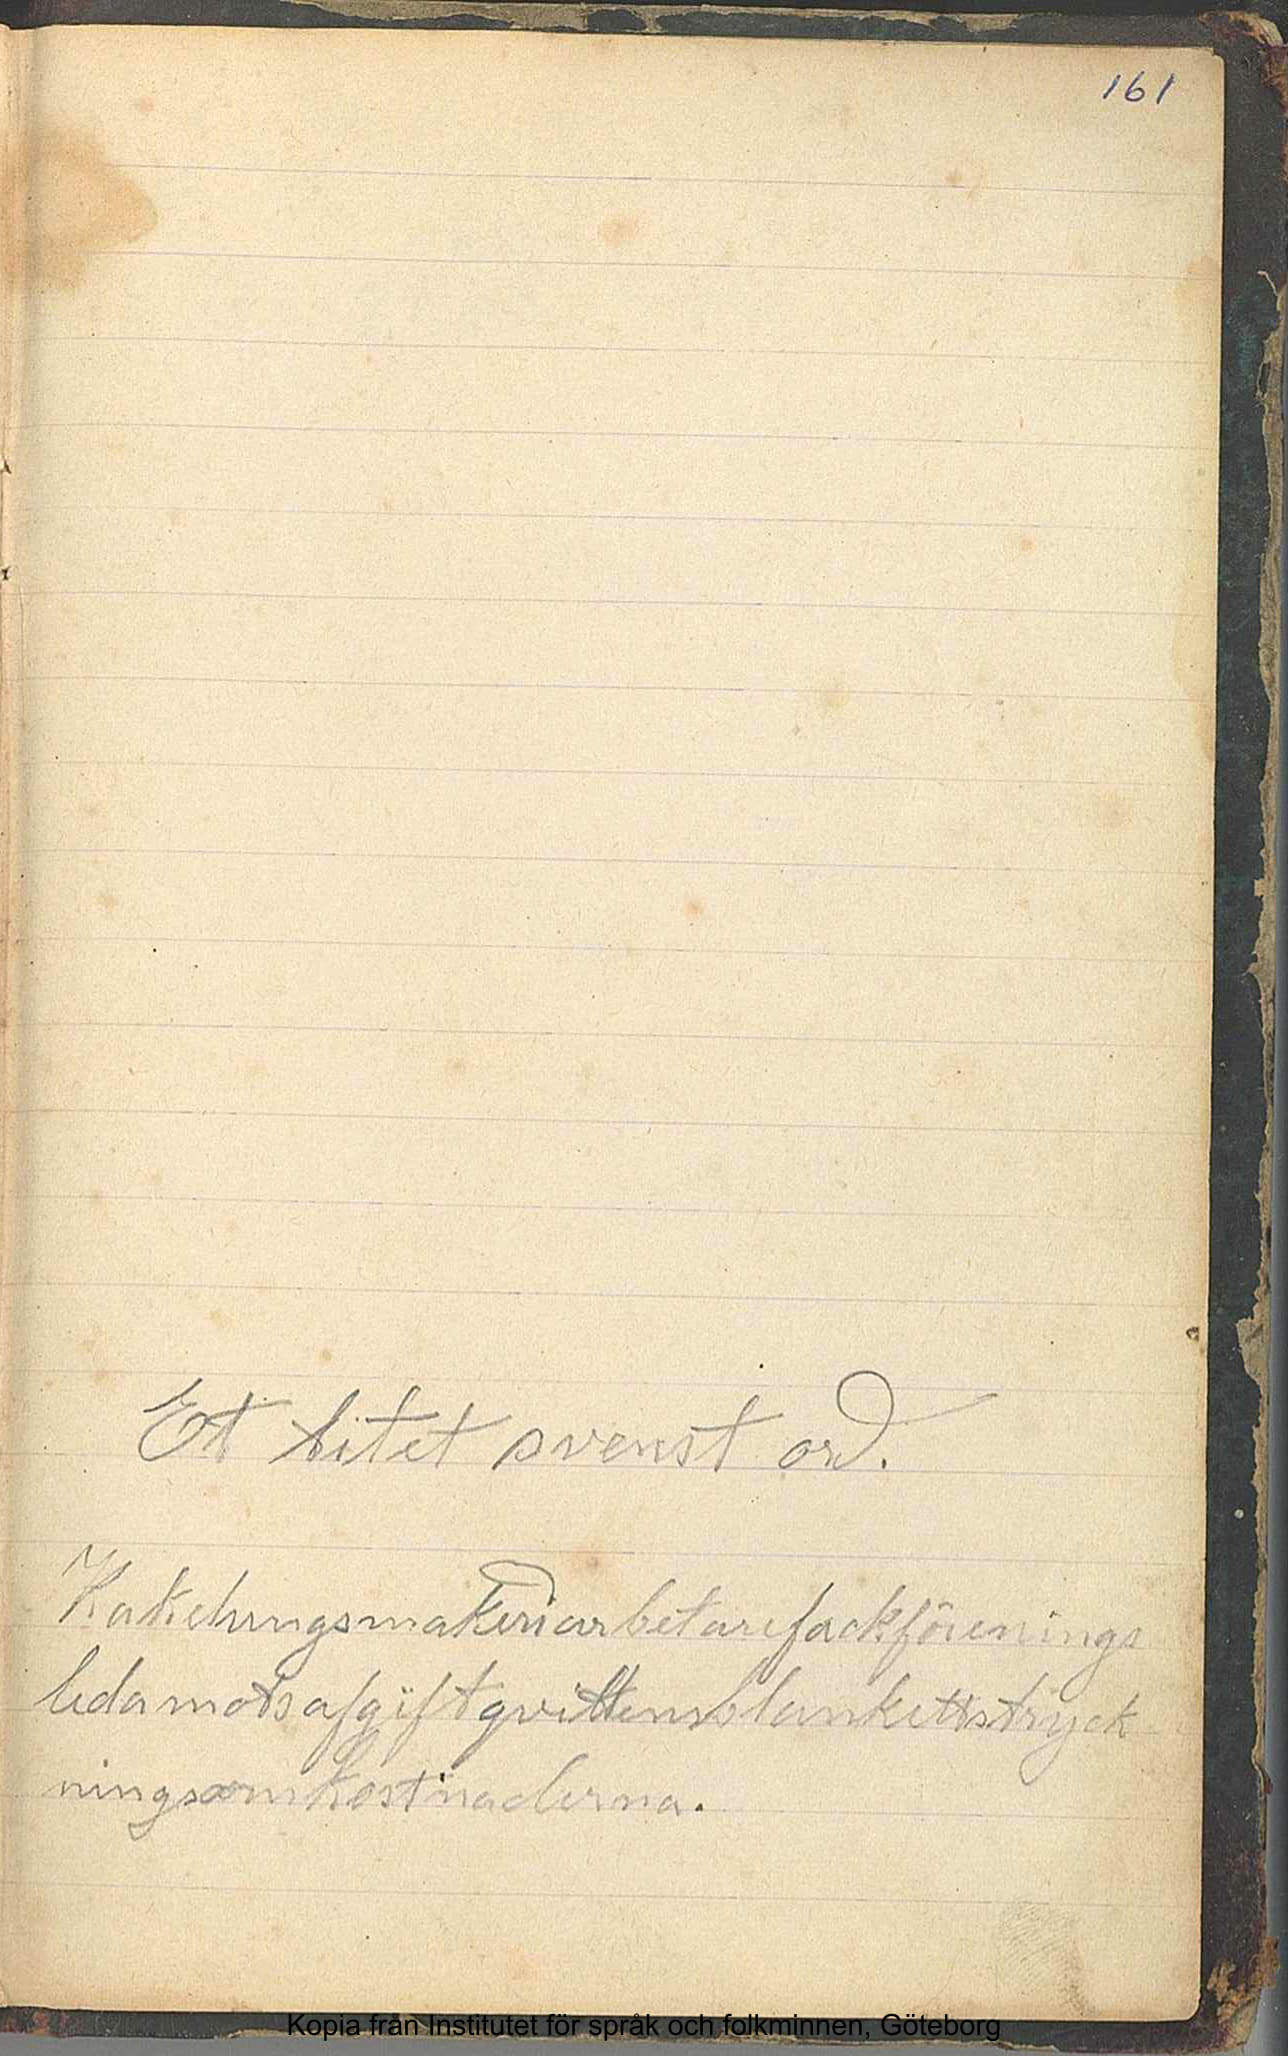 161
Et litet svenst ord.
Kakelungsmakeriarbetarefackförenings
ledamotsafgiftqvittensblankettstryck
ningsomkostnaderna.
Kopia från Institutet för språk och folkminnen, Göteborg